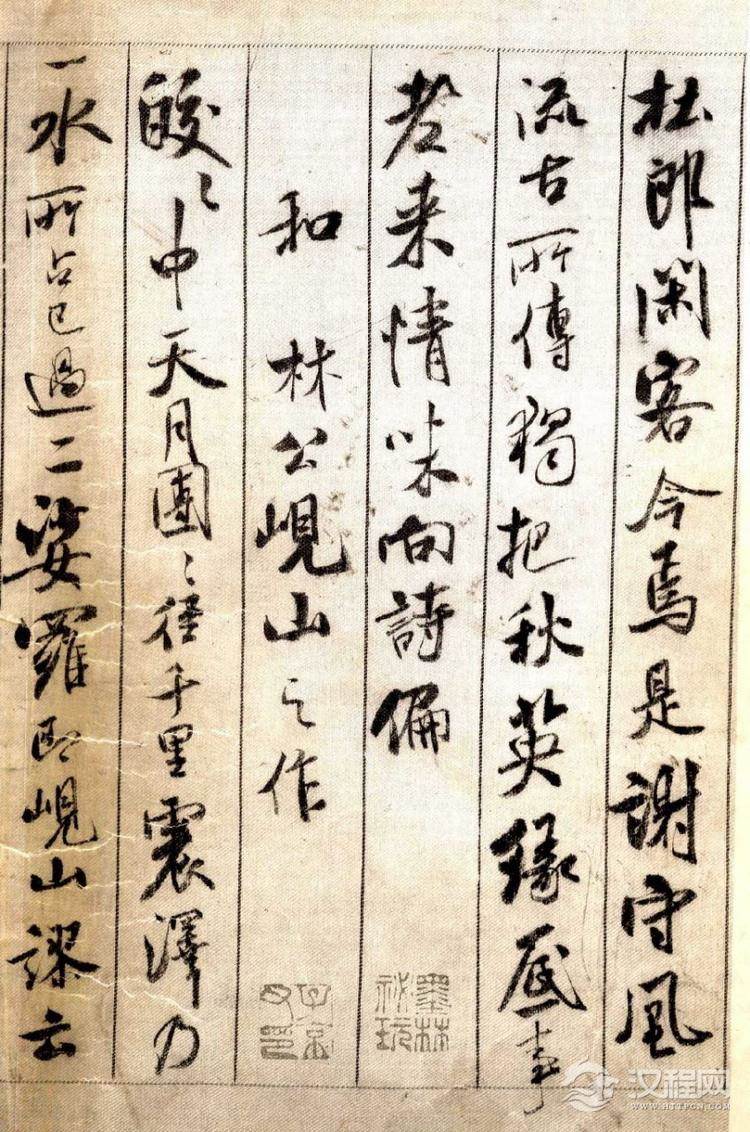 杜郎閑客今焉是謝守風
流古所傳獨把秋英緣底事
老来情味向詩偏
和林公峴山之作
皎〻中天月團〻徑千里震澤乃
一水所占已過二娑羅即峴山謬云
墨林
秘玩
子京
父印
汉程网
WWW.HTTPCN.COM